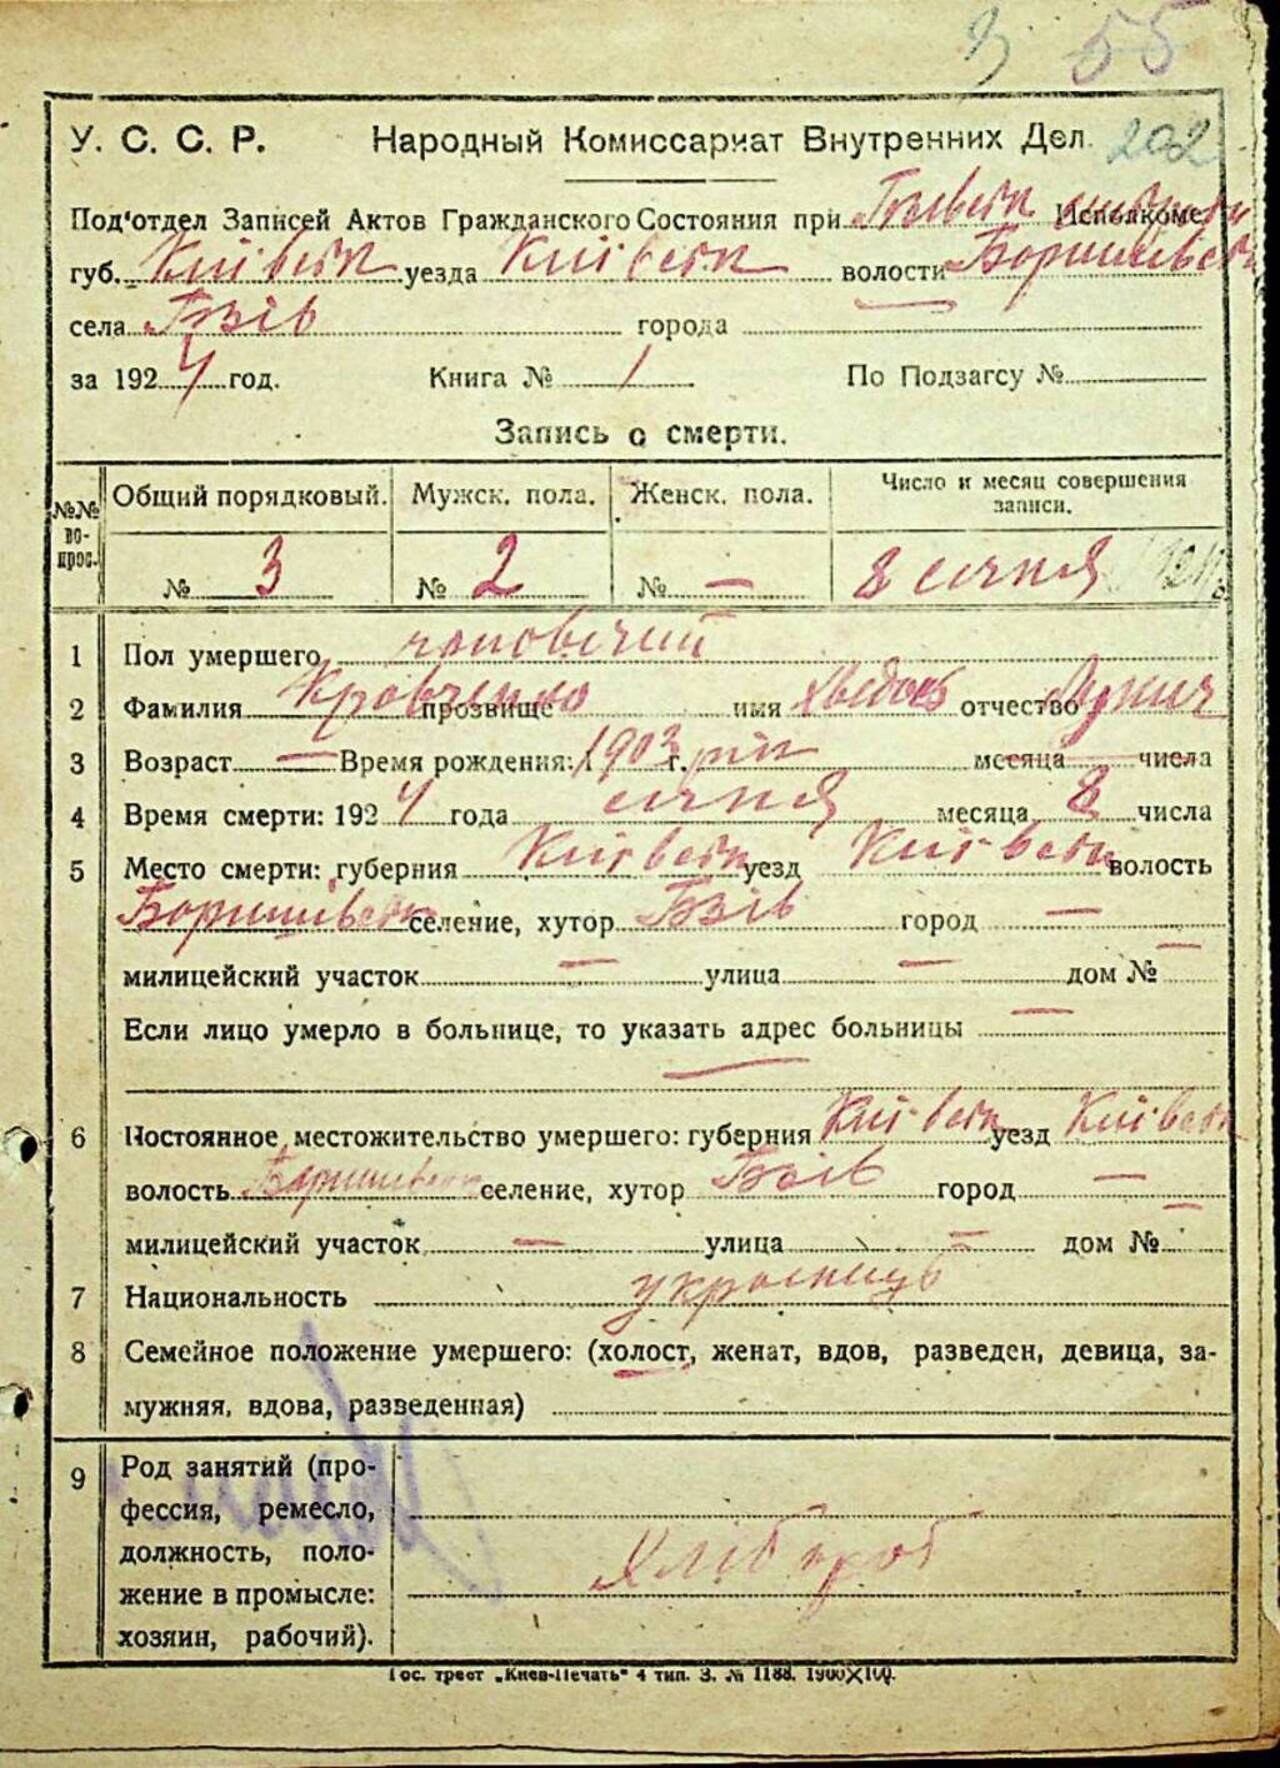 55
202
У. С. С. Р. Народный Комиссариат Внутренних Дел.
Под'отдел Записей Актов Гражданского Состояния при Исполкоме
губ. Київськ уезда Київськ волости Боришівськ
села Бзів города
за 1924 год. Книга № 1 По Подзагсу №
Запись о смерти.
№№ вопрос. Общий порядковый. Мужск. пола. Женск. пола. Число и месяц совершения записи.
№ 3 № 2 № — 8 січня
1 Пол умершего чоловічий
2 Фамилия Кравченко прозвище имя Хведось отчество
3 Возраст — Время рождения: 1903 г. рік месяца числа
4 Время смерти: 1924 года січня месяца 8 числа
5 Место смерти: губерния Київськ уезд Київськ волость
Боришівськ селение, хутор Бзів город —
милицейский участок — улица — дом № —
Если лицо умерло в больнице, то указать адрес больницы —
—
6 Постоянное местожительство умершего: губерния Київськ уезд Київськ
волость Боришівськ селение, хутор Бзів город —
милицейский участок — улица — дом № —
7 Национальность украинець
8 Семейное положение умершего: (холост, женат, вдов, разведен, девица, за-
мужняя, вдова, разведенная)
9 Род занятий (про-
фессия, ремесло,
должность, поло-
жение в промысле:
хозяин, рабочий).
Хлібороб
Гос. трест „Киев-Печать" 4 тип. З. № 1188. 1900Х100.